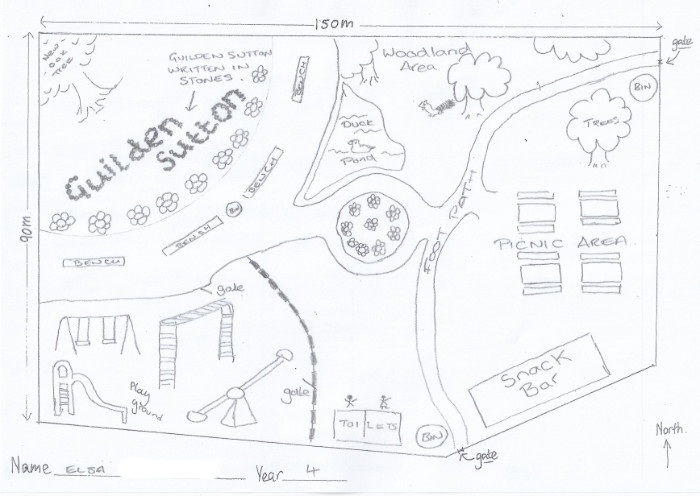 150m
NEW
OAK
TREE
GUILDEN SUTTON
WRITTEN IN
STONES.
BENCH
Woodland
Area
gate
BIN
TREES
Duck
Pond
Guilden
Sutton
BENCH
BIN
BENSH
BENCH
FOOT PATH
PICNIC AREA
90m
gate
gate
Play
ground
Snack
Bar
TOILETS
BIN
gate
North.
Name ELSA
Year 4